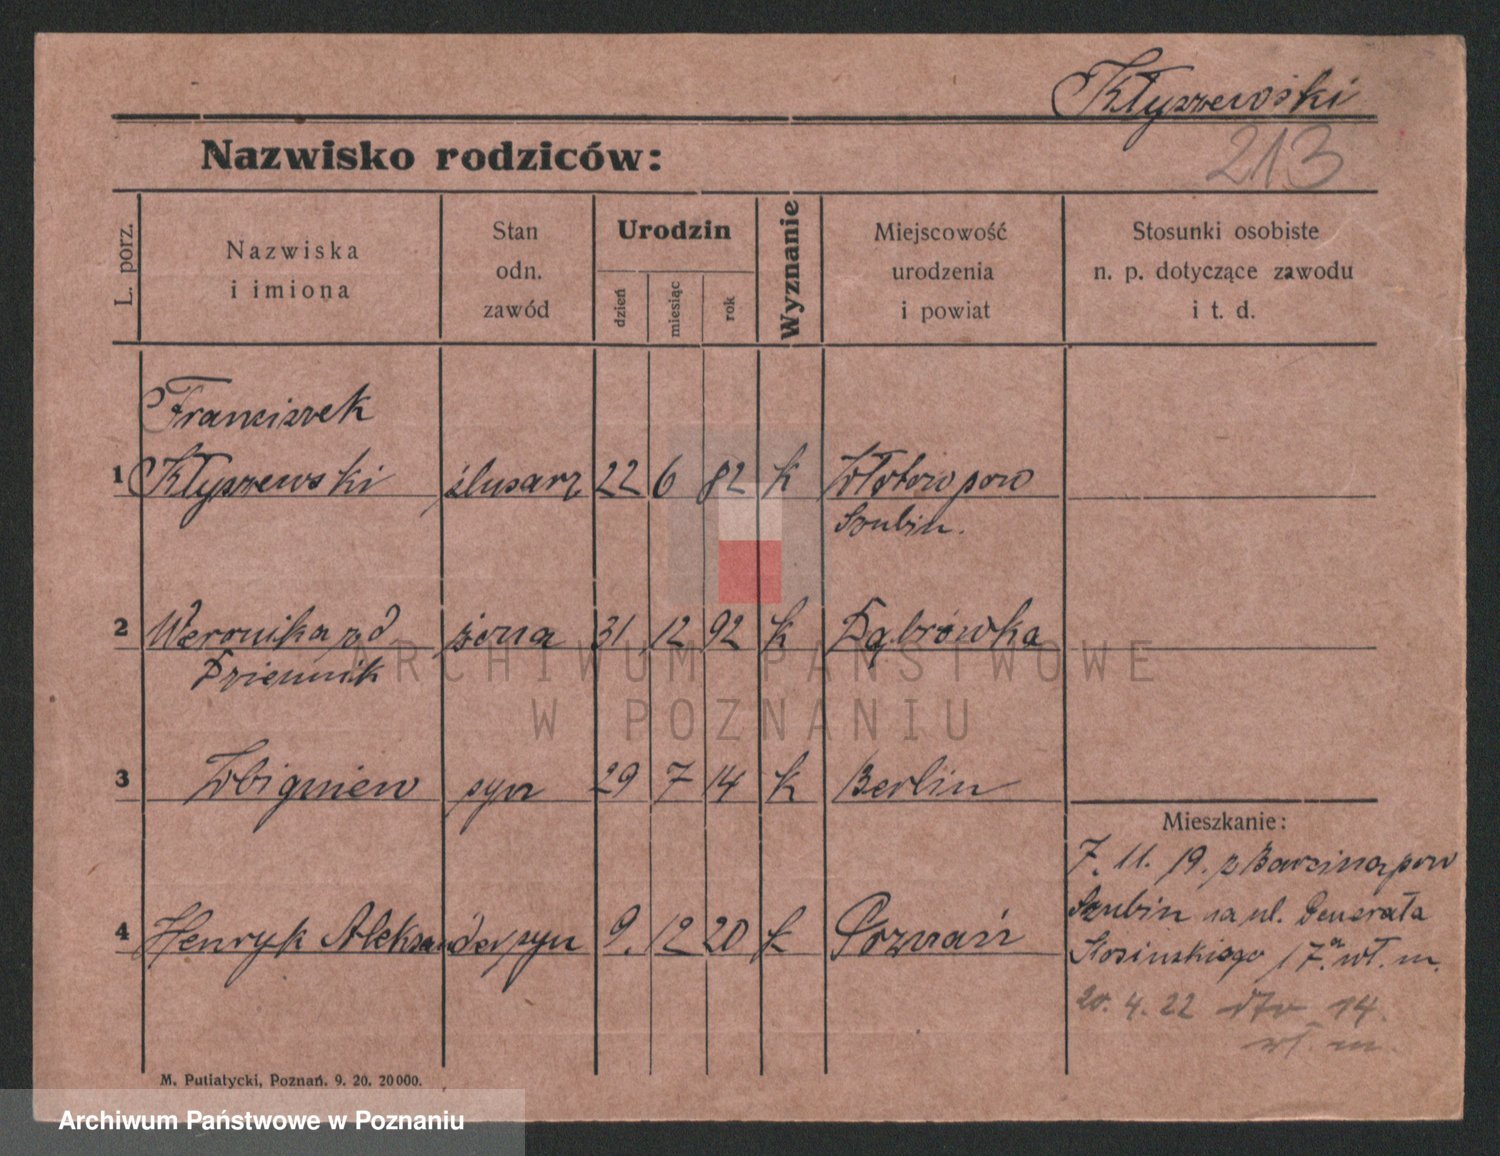 Kłyszewski
213
Nazwisko rodziców:
L. porz.
Nazwiska
i imiona
Stan
odn.
zawód
Urodzin
dzień
miesiąc
rok
Wyznanie
Miejscowość
urodzenia
i powiat
Stosunki osobiste
n. p. dotyczące zawodu
i t. d.
Franciszek
1 Kłyszewski ślusarz 22 6 82 k Złotowo pow
Szubin.
2 Weronika zd żona 31 12 92 k Dąbrówka
Dziennik
3 Zbigniew syn 29 7 14 k Berlin
Mieszkanie:
7. 11. 19. z Barcina pow
Szubin na ul. Generała
4 Henryk Aleksander syn 9. 12 20 k Poznań
Kosińskiego 17a wł. m.
20. 4. 22 dto 14.
wł. m.
M. Putiatycki, Poznań. 9. 20. 20000.
ARCHIWUM PAŃSTWOWE
W POZNANIU
Archiwum Państwowe w Poznaniu